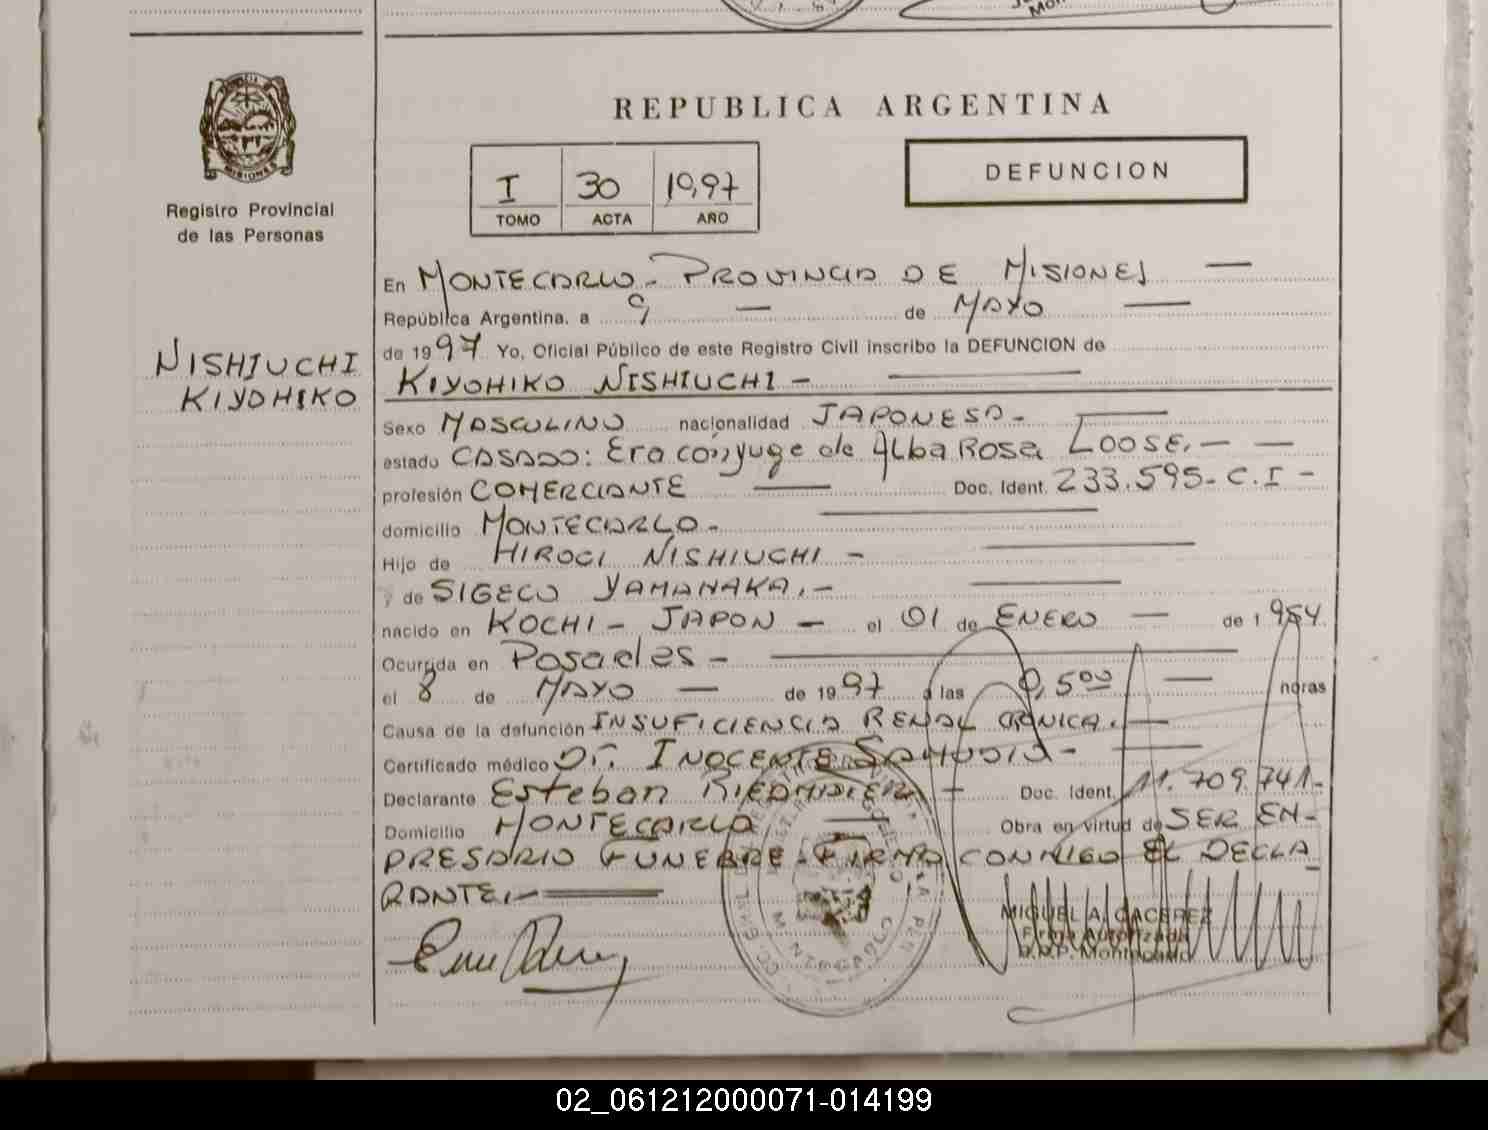 REPUBLICA ARGENTINA
MISIONES
Registro Provincial
de las Personas
I 30 1997
TOMO ACTA AÑO
DEFUNCION
NISHIUCHI
KIYOHIKO
En MONTECARLO - PROVINCIA DE MISIONES —
República Argentina, a 9 — de MAYO —
de 1997 Yo, Oficial Público de este Registro Civil inscribo la DEFUNCION de
KIYOHIKO NISHIUCHI -
Sexo MASCULINO nacionalidad JAPONESA -
estado CASADO: Era cónyuge de Alba Rosa LOOSE. — —
profesión COMERCIANTE — Doc. Ident. 233.595- C.I -
domicilio MONTECARLO -
Hijo de HIROGI NISHIUCHI -
y de SIGECO YAMANAKA. -
nacido en KOCHI - JAPON - el 01 de ENERO — de 1954
Ocurrida en Posadas -
el 8 de MAYO — de 1997 a las 0,500 — horas
Causa de la defunción INSUFICIENCIA RENAL CRONICA. —
Certificado médico Dr. INOCENTE SAMUDIO -
Declarante Esteban — Doc. Ident. 11.709.741-
Domicilio MONTECARLO — Obra en virtud de SER EM-
PRESARIO FUNEBRE - FIRMA CONMIGO EL DECLA
RANTE. -
MIGUEL A. CACEREZ
Firma Autorizada
MONTECARLO
02_061212000071-014199